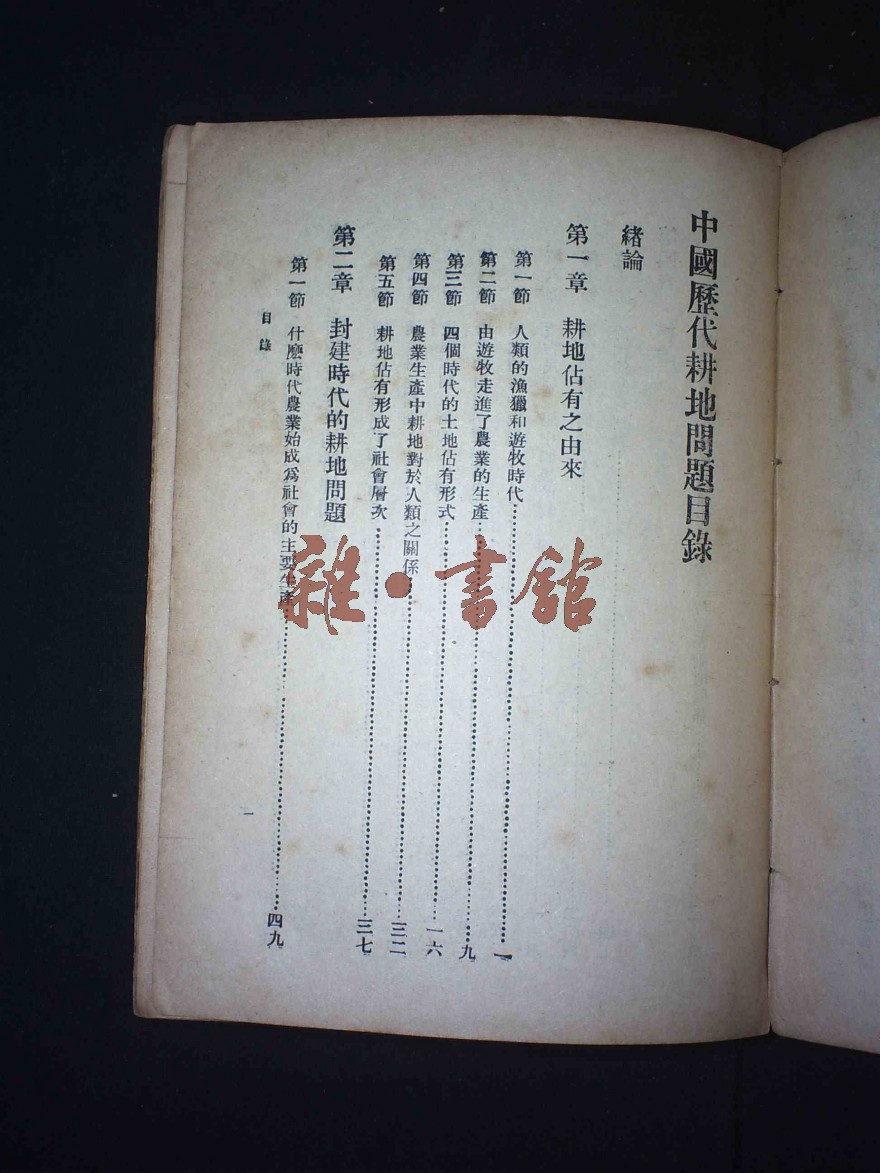 中國歷代耕地問題目錄
緒論
第一章 耕地佔有之由來
第一節 人類的漁獵和遊牧時代……一
第二節 由遊牧走進了農業的生產……九
第三節 四個時代的土地佔有形式……一六
第四節 農業生產中耕地對於人類之關係……三二
第五節 耕地佔有形成了社會層次……三七
第二章 封建時代的耕地問題
第一節 什麼時代農業始成爲社會的主要生產……四九
目錄
一
雜·書館